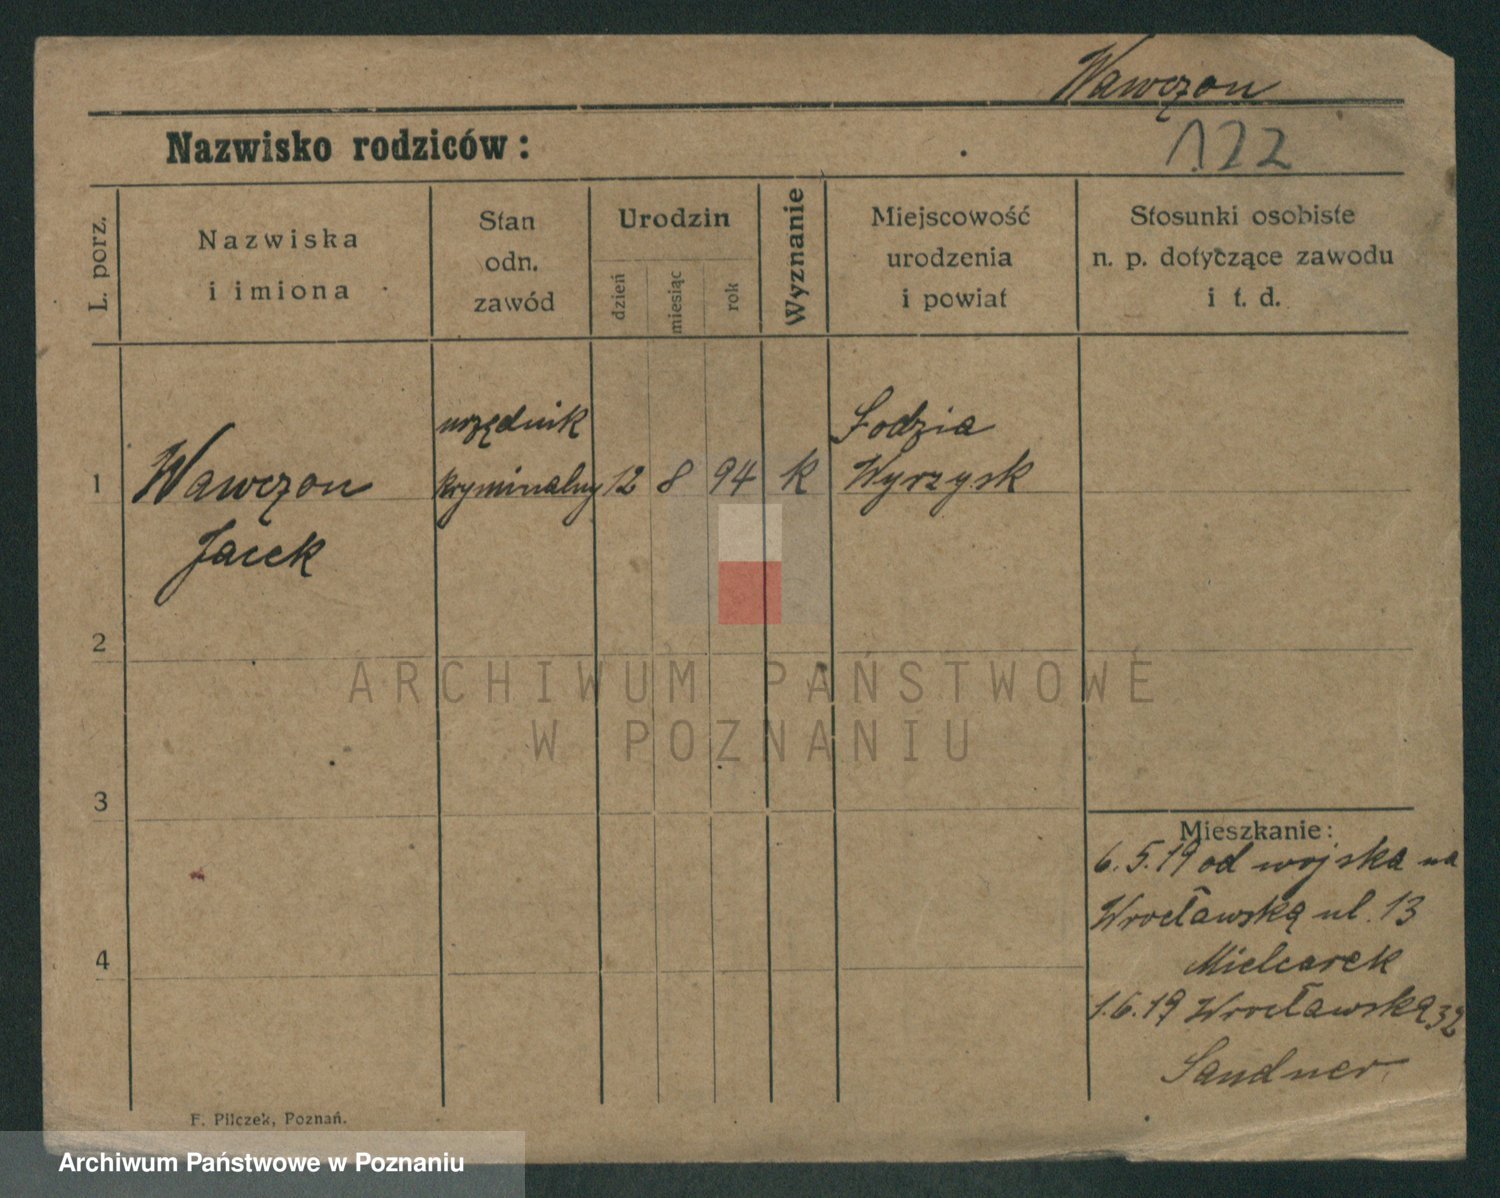 Wawczon
Nazwisko rodziców:
122
L. porz.
Nazwiska
i imiona
Stan
odn.
zawód
Urodzin
dzień
miesiąc
rok
Wyznanie
Miejscowość
urodzenia
i powiat
Stosunki osobiste
n. p. dotyczące zawodu
i t. d.
1
Wawczon
Jacek
urzędnik
kryminalny
12
8
94
k
Łodzia
Wyrzysk
2
3
4
Mieszkanie:
6.5.19 od wojska na
Wrocławską ul. 13
Mielcarek
1.6.19 Wrocławska 32
Sandner
F. Pilczek, Poznań.
ARCHIWUM PAŃSTWOWE
W POZNANIU
Archiwum Państwowe w Poznaniu